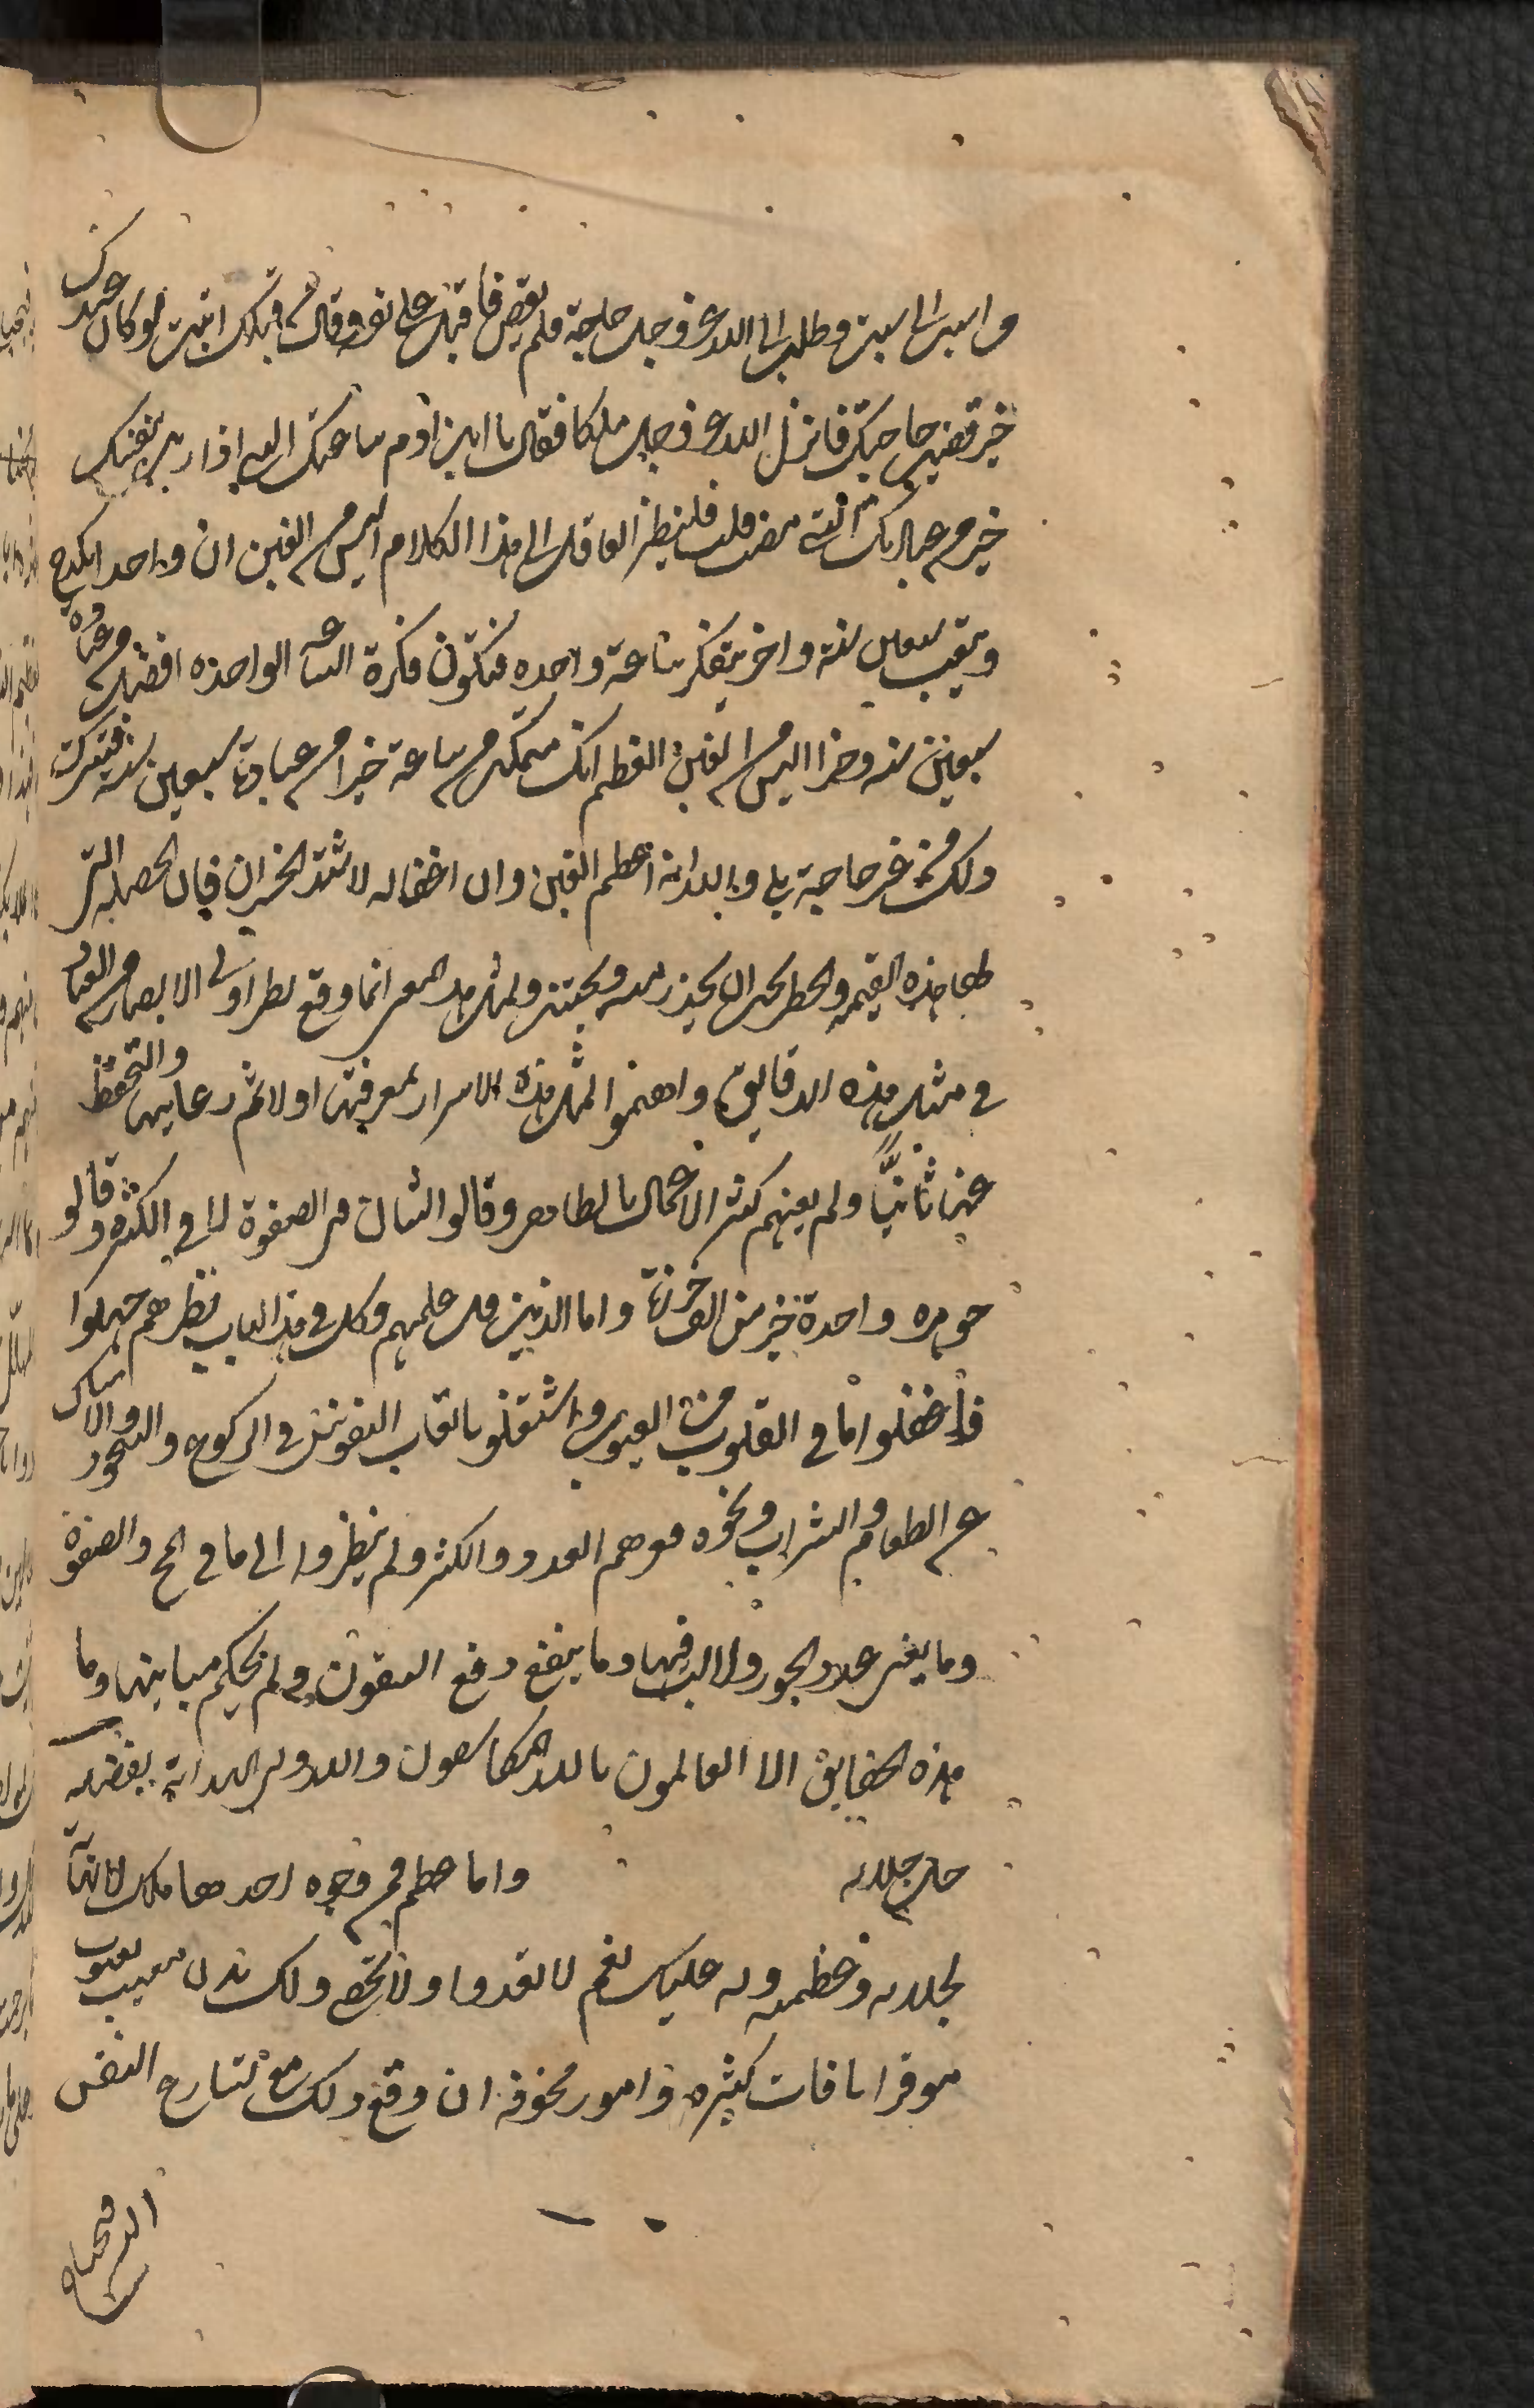 من السبت الى السبت وطلب الى الله عز وجل حاجة فلم يقض فاقبل على نفسه وقال من قبلك اتيت لو كان عندك
خير قضيت حاجتك فانزل الله عز وجل ملكا فقال يا ابن ادم ساعتك التي ازريت بنفسك
خير من عبادتك التي مضت قلت فلينظر العاقل الى هذا الكلام اليس من الغبن ان واحد يكدح
ويتعب سبعين سنة واخر يتفكر ساعة واحدة فتكون فكرة الساعة الواحدة افضل من عبادة
سبعين سنة وهذا اليس من الغبن العظيم انك متمكن من ساعة خير من عبادة سبعين سنة فتتركـ
ذلك من غير حاجة بلى والله انه اعظم الغبن وان اغفاله لاشد الخسران فان الخصلة التي
لها هذه القيمة والخطر يحق ان يحذر منه ويجتنب ولمثل هذا المعنى انما وقع نظر اولى الابصار من العباد
في مثل هذه الدقايق واهتموا لمثل هذه الاسرار بمعرفتها اولا ثم رعايتها والتحفظ
عنها ثانيا ولم يغنهم كثرة الاعمال بالظاهر وقالوا الشان في الصفوة لا في الكثرة وقالو
جوهره واحدة خير من الف خرزة واما الذين قل علمهم وكل في هذا الباب نظرهم جهلوا
فاغفلوا ما في القلوب من العيوب واشتغلو باتعاب النفوس في الركوع والسجود والامساك
عن الطعام والشراب ونحوه فوهم العدد والكثرة ولم ينظروا الى ما في المخ والصفوة
وما يغنى عدد الجوز ولا لب فيها وما ينفع رفع السقوف ولم يحكم مبانيها وما
هذه الحقايق الا العالمون بالله المكاشفون والله ولى الهداية بفضله
جل جلاله واما عظم من وجوه احدها ملك لا نهاية
لجلاله وعظمته وله عليك نعم لا تعد ولا تحصى ولك بدن معيب بعيوب
موقرا بافات كثيره وامور مخوفة ان وقع ذلك مع تسارع النفس